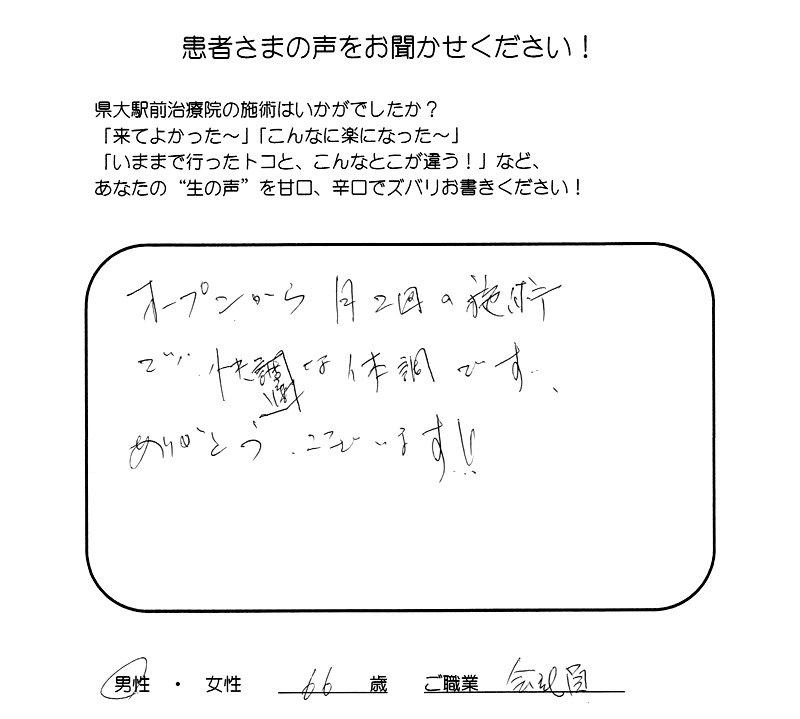 患者さまの声をお聞かせください！
県大駅前治療院の施術はいかがでしたか？
「来てよかった～」「こんなに楽になった～」
「いままで行ったトコと、こんなとこが違う！」など、
あなたの“生の声”を甘口、辛口でズバリお書きください！
オープンから 月2回の施術
で、快適な体調です。
ありがとうございます!!
男性 ・ 女性 66 歳 ご職業 会社員